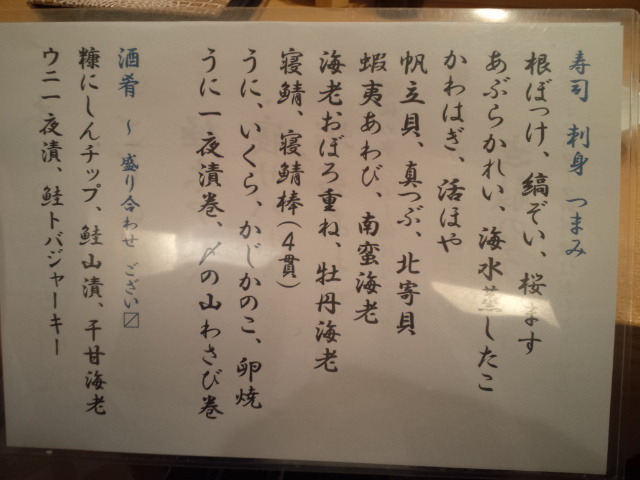 寿司 刺身 つまみ
根ぼっけ、縞ぞい、桜ます
あぶらかれい、海水蒸したこ
かわはぎ、活ほや
帆立貝、真つぶ、北寄貝
蝦夷あわび、南蛮海老
海老おぼろ重ね、牡丹海老
寝鯖、寝鯖棒(4貫)
うに、いくら、かじかのこ、卵焼
うに一夜漬巻、〆の山わさび巻
酒肴 ~ 盛り合わせ ござい〼
糠にしんチップ、鮭山漬、干甘海老
ウニ一夜漬、鮭トバジャーキー